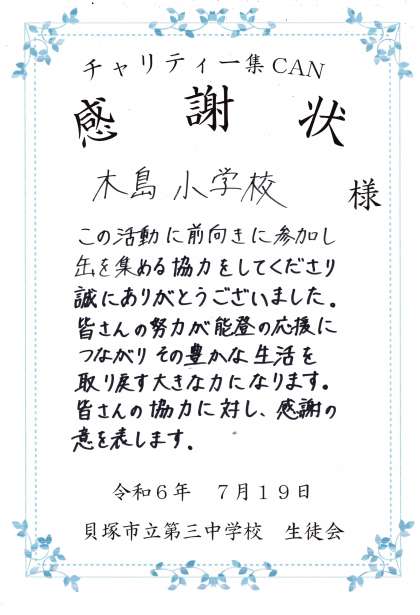 チャリティー集CAN
感謝状
木島小学校 様
この活動に前向きに参加し
缶を集める協力をしてくださり
誠にありがとうございました。
皆さんの努力が能登の応援に
つながりその豊かな生活を
取り戻す大きな力になります。
皆さんの協力に対し、感謝の
意を表します。
令和6年 7月19日
貝塚市立第三中学校 生徒会